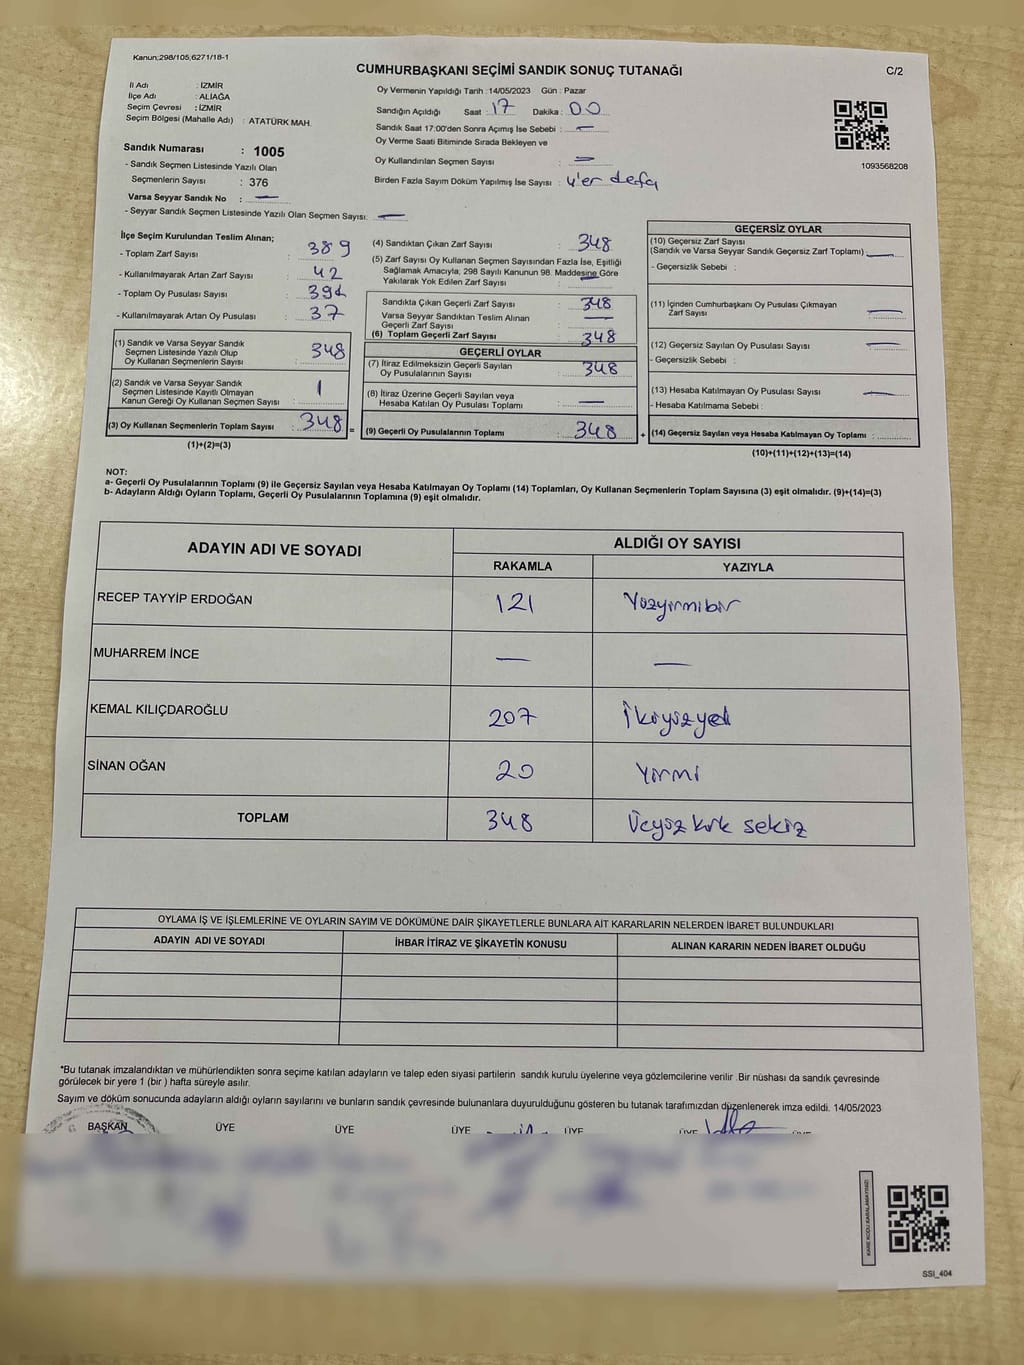 Kanun:298/105,6271/18-1
CUMHURBAŞKANI SEÇİMİ SANDIK SONUÇ TUTANAĞI
C/2
İl Adı : İZMİR
İlçe Adı : ALİAĞA
Seçim Çevresi : İZMİR
Seçim Bölgesi (Mahalle Adı) : ATATÜRK MAH.
Sandık Numarası : 1005
- Sandık Seçmen Listesinde Yazılı Olan
Seçmenlerin Sayısı : 376
Varsa Seyyar Sandık No : —
- Seyyar Sandık Seçmen Listesinde Yazılı Olan Seçmen Sayısı: —
Oy Vermenin Yapıldığı Tarih :14/05/2023 Gün : Pazar
Sandığın Açıldığı Saat : 17 Dakika : 00
Sandık Saat 17:00'den Sonra Açımış İse Sebebi : —
Oy Verme Saati Bitiminde Sırada Bekleyen ve
Oy Kullandırılan Seçmen Sayısı : —
Birden Fazla Sayım Döküm Yapılmış İse Sayısı : 4'er defa
1093568208
İlçe Seçim Kurulundan Teslim Alınan;
- Toplam Zarf Sayısı : 389
- Kullanılmayarak Artan Zarf Sayısı : 42
- Toplam Oy Pusulası Sayısı :
- Kullanılmayarak Artan Oy Pusulası : 37
(1) Sandık ve Varsa Seyyar Sandık
Seçmen Listesinde Yazılı Olup
Oy Kullanan Seçmenlerin Sayısı : 348
(2) Sandık ve Varsa Seyyar Sandık
Seçmen Listesinde Kayıtlı Olmayan
Kanun Gereği Oy Kullanan Seçmen Sayısı : 1
(3) Oy Kullanan Seçmenlerin Toplam Sayısı : 348 =
(1)+(2)=(3)
(4) Sandıktan Çıkan Zarf Sayısı : 348
(5) Zarf Sayısı Oy Kullanan Seçmen Sayısından Fazla İse, Eşitliği
Sağlamak Amacıyla, 298 Sayılı Kanunun 98. Maddesine Göre
Yakılarak Yok Edilen Zarf Sayısı : —
Sandıkta Çıkan Geçerli Zarf Sayısı : 348
Varsa Seyyar Sandıktan Teslim Alınan
Geçerli Zarf Sayısı : —
(6) Toplam Geçerli Zarf Sayısı : 348
GEÇERLİ OYLAR
(7) İtiraz Edilmeksizin Geçerli Sayılan
Oy Pusulalarının Sayısı : 348
(8) İtiraz Üzerine Geçerli Sayılan veya
Hesaba Katılan Oy Pusulası Toplamı : —
(9) Geçerli Oy Pusulalarının Toplamı : 348 +
GEÇERSİZ OYLAR
(10) Geçersiz Zarf Sayısı
(Sandık ve Varsa Seyyar Sandık Geçersiz Zarf Toplamı) —
- Geçersizlik Sebebi :
(11) İçinden Cumhurbaşkanı Oy Pusulası Çıkmayan
Zarf Sayısı : —
(12) Geçersiz Sayılan Oy Pusulası Sayısı : —
- Geçersizlik Sebebi :
(13) Hesaba Katılmayan Oy Pusulası Sayısı : —
- Hesaba Katılmama Sebebi :
(14) Geçersiz Sayılan veya Hesaba Katılmayan Oy Toplamı :
(10)+(11)+(12)+(13)=(14)
NOT:
a- Geçerli Oy Pusulalarının Toplamı (9) ile Geçersiz Sayılan veya Hesaba Katılmayan Oy Toplamı (14) Toplamları, Oy Kullanan Seçmenlerin Toplam Sayısına (3) eşit olmalıdır. (9)+(14)=(3)
b- Adayların Aldığı Oyların Toplamı, Geçerli Oy Pusulalarının Toplamına (9) eşit olmalıdır.
ADAYIN ADI VE SOYADI
ALDIĞI OY SAYISI
RAKAMLA YAZIYLA
RECEP TAYYİP ERDOĞAN 121 Yüzyirmibir
MUHARREM İNCE — —
KEMAL KILIÇDAROĞLU 207 İkiyüzyedi
SİNAN OĞAN 20 Yirmi
TOPLAM 348 Üçyüz kırk sekiz
OYLAMA İŞ VE İŞLEMLERİNE VE OYLARIN SAYIM VE DÖKÜMÜNE DAİR ŞİKAYETLERLE BUNLARA AİT KARARLARIN NELERDEN İBARET BULUNDUKLARI
ADAYIN ADI VE SOYADI İHBAR İTİRAZ VE ŞİKAYETİN KONUSU ALINAN KARARIN NEDEN İBARET OLDUĞU
*Bu tutanak imzalandıktan ve mühürlendikten sonra seçime katılan adayların ve talep eden siyasi partilerin sandık kurulu üyelerine veya gözlemcilerine verilir .Bir nüshası da sandık çevresinde
görülecek bir yere 1 (bir ) hafta süreyle asılır.
Sayım ve döküm sonucunda adayların aldığı oyların sayılarını ve bunların sandık çevresinde bulunanlara duyurulduğunu gösteren bu tutanak tarafımızdan düzenlenerek imza edildi. 14/05/2023
BAŞKAN ÜYE ÜYE ÜYE ÜYE ÜYE
KARE KODU KARALAMAYINIZ!
SSI_404